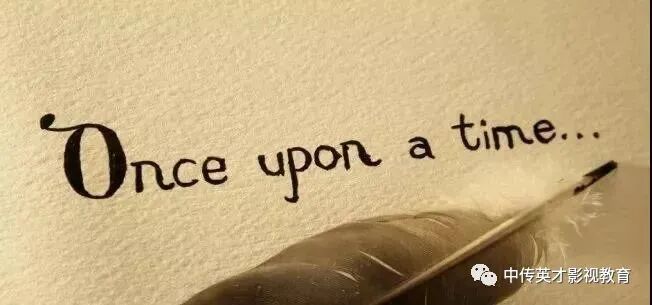 Once upon a time...
中传英才影视教育